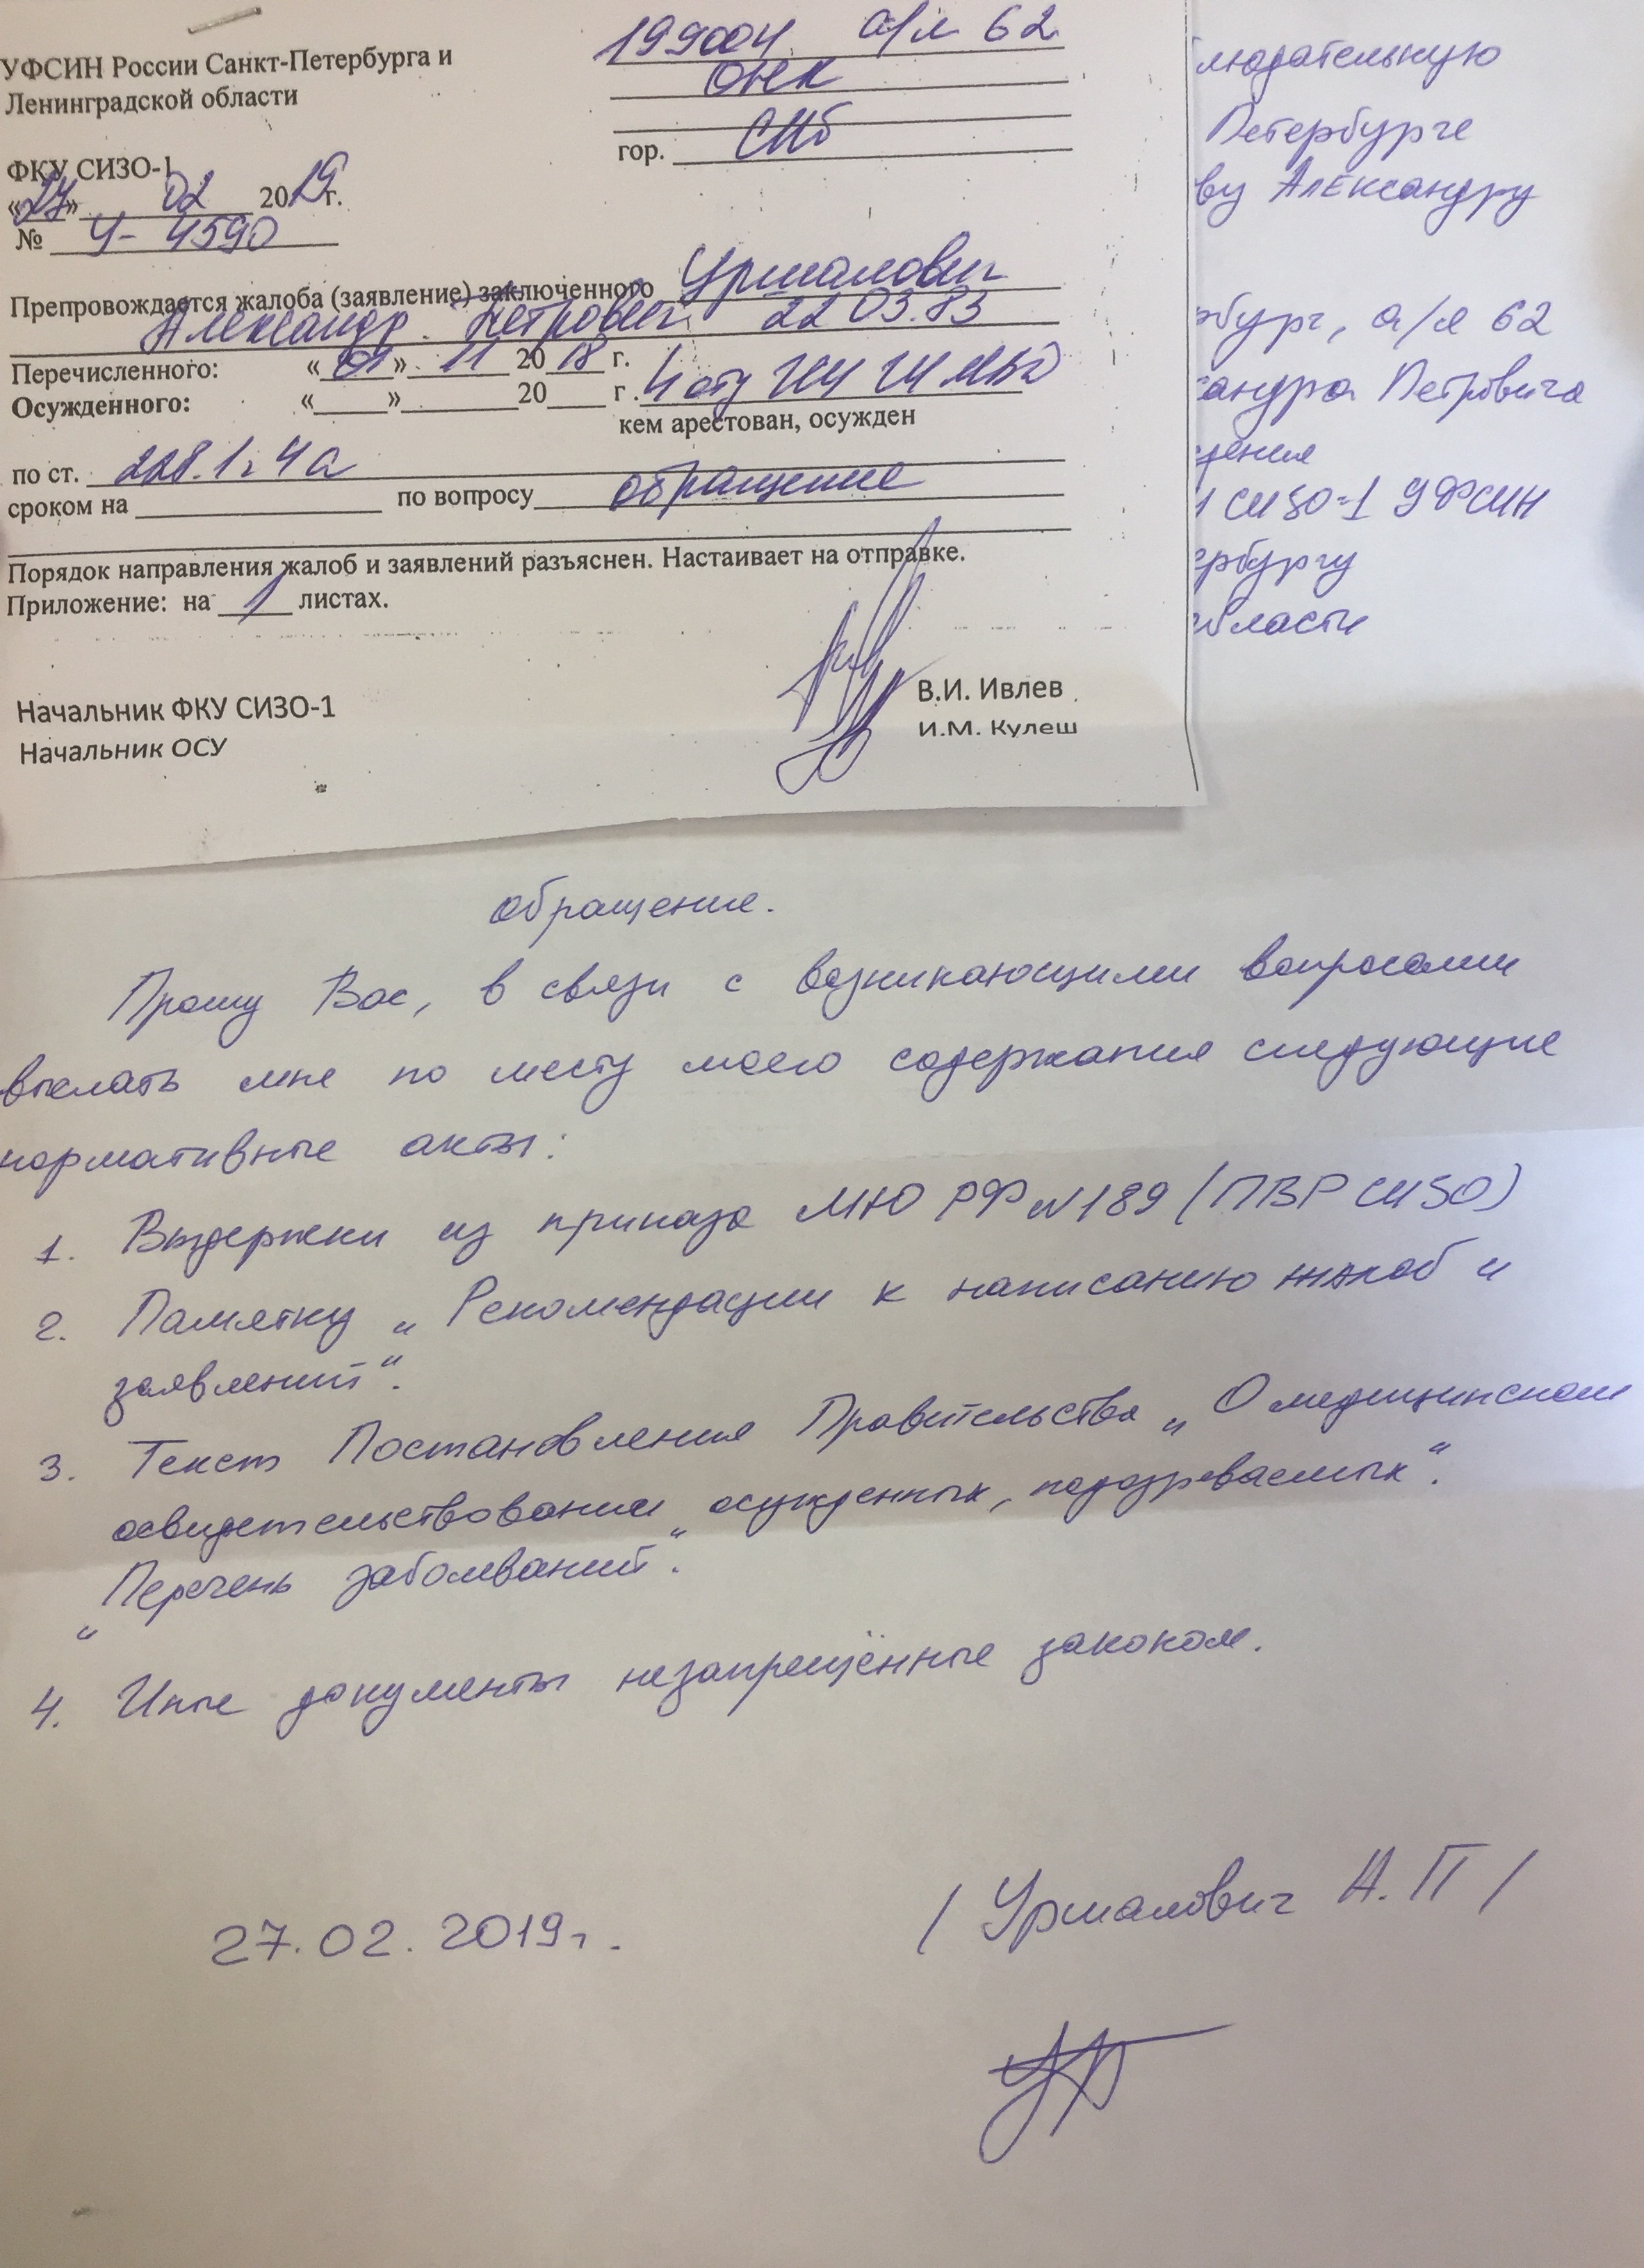 УФСИН России Санкт-Петербурга и
Ленинградской области
199004 а/я 62
ОНК
гор. СПб
ФКУ СИЗО-1
«27» 02 2019 г.
№ У-4590
Препровождается жалоба (заявление) заключенного Урманович
Александр Петрович 22 03.83
Перечисленного: «01» 11 2018 г.
Осужденного: « » 20 г.
кем арестован, осужден
по ст. 228.1 ч 4 а
сроком на по вопросу обращение
Порядок направления жалоб и заявлений разъяснен. Настаивает на отправке.
Приложение: на 1 листах.
Начальник ФКУ СИЗО-1 В.И. Ивлев
Начальник ОСУ И.М. Кулеш
людательную
Петербурге
ву Александру
рбург, а/я 62
сандра Петровича
дения
СИЗО-1 УФСИН
ербургу
области
обращение.
Прошу Вас, в связи с возникающими вопросами
выслать мне по месту моего содержания следующие
нормативные акты:
1. Выдержки из приказа МЮ РФ N189 (ПВР СИЗО)
2. Памятку „Рекомендации к написанию жалоб и
заявлений“.
3. Текст Постановления Правительства „О медицинском
освидетельствовании осужденных, подозреваемых“.
„Перечень заболеваний“.
4. Иные документы незапрещённые законом.
27.02.2019г. / Урманович А.П /